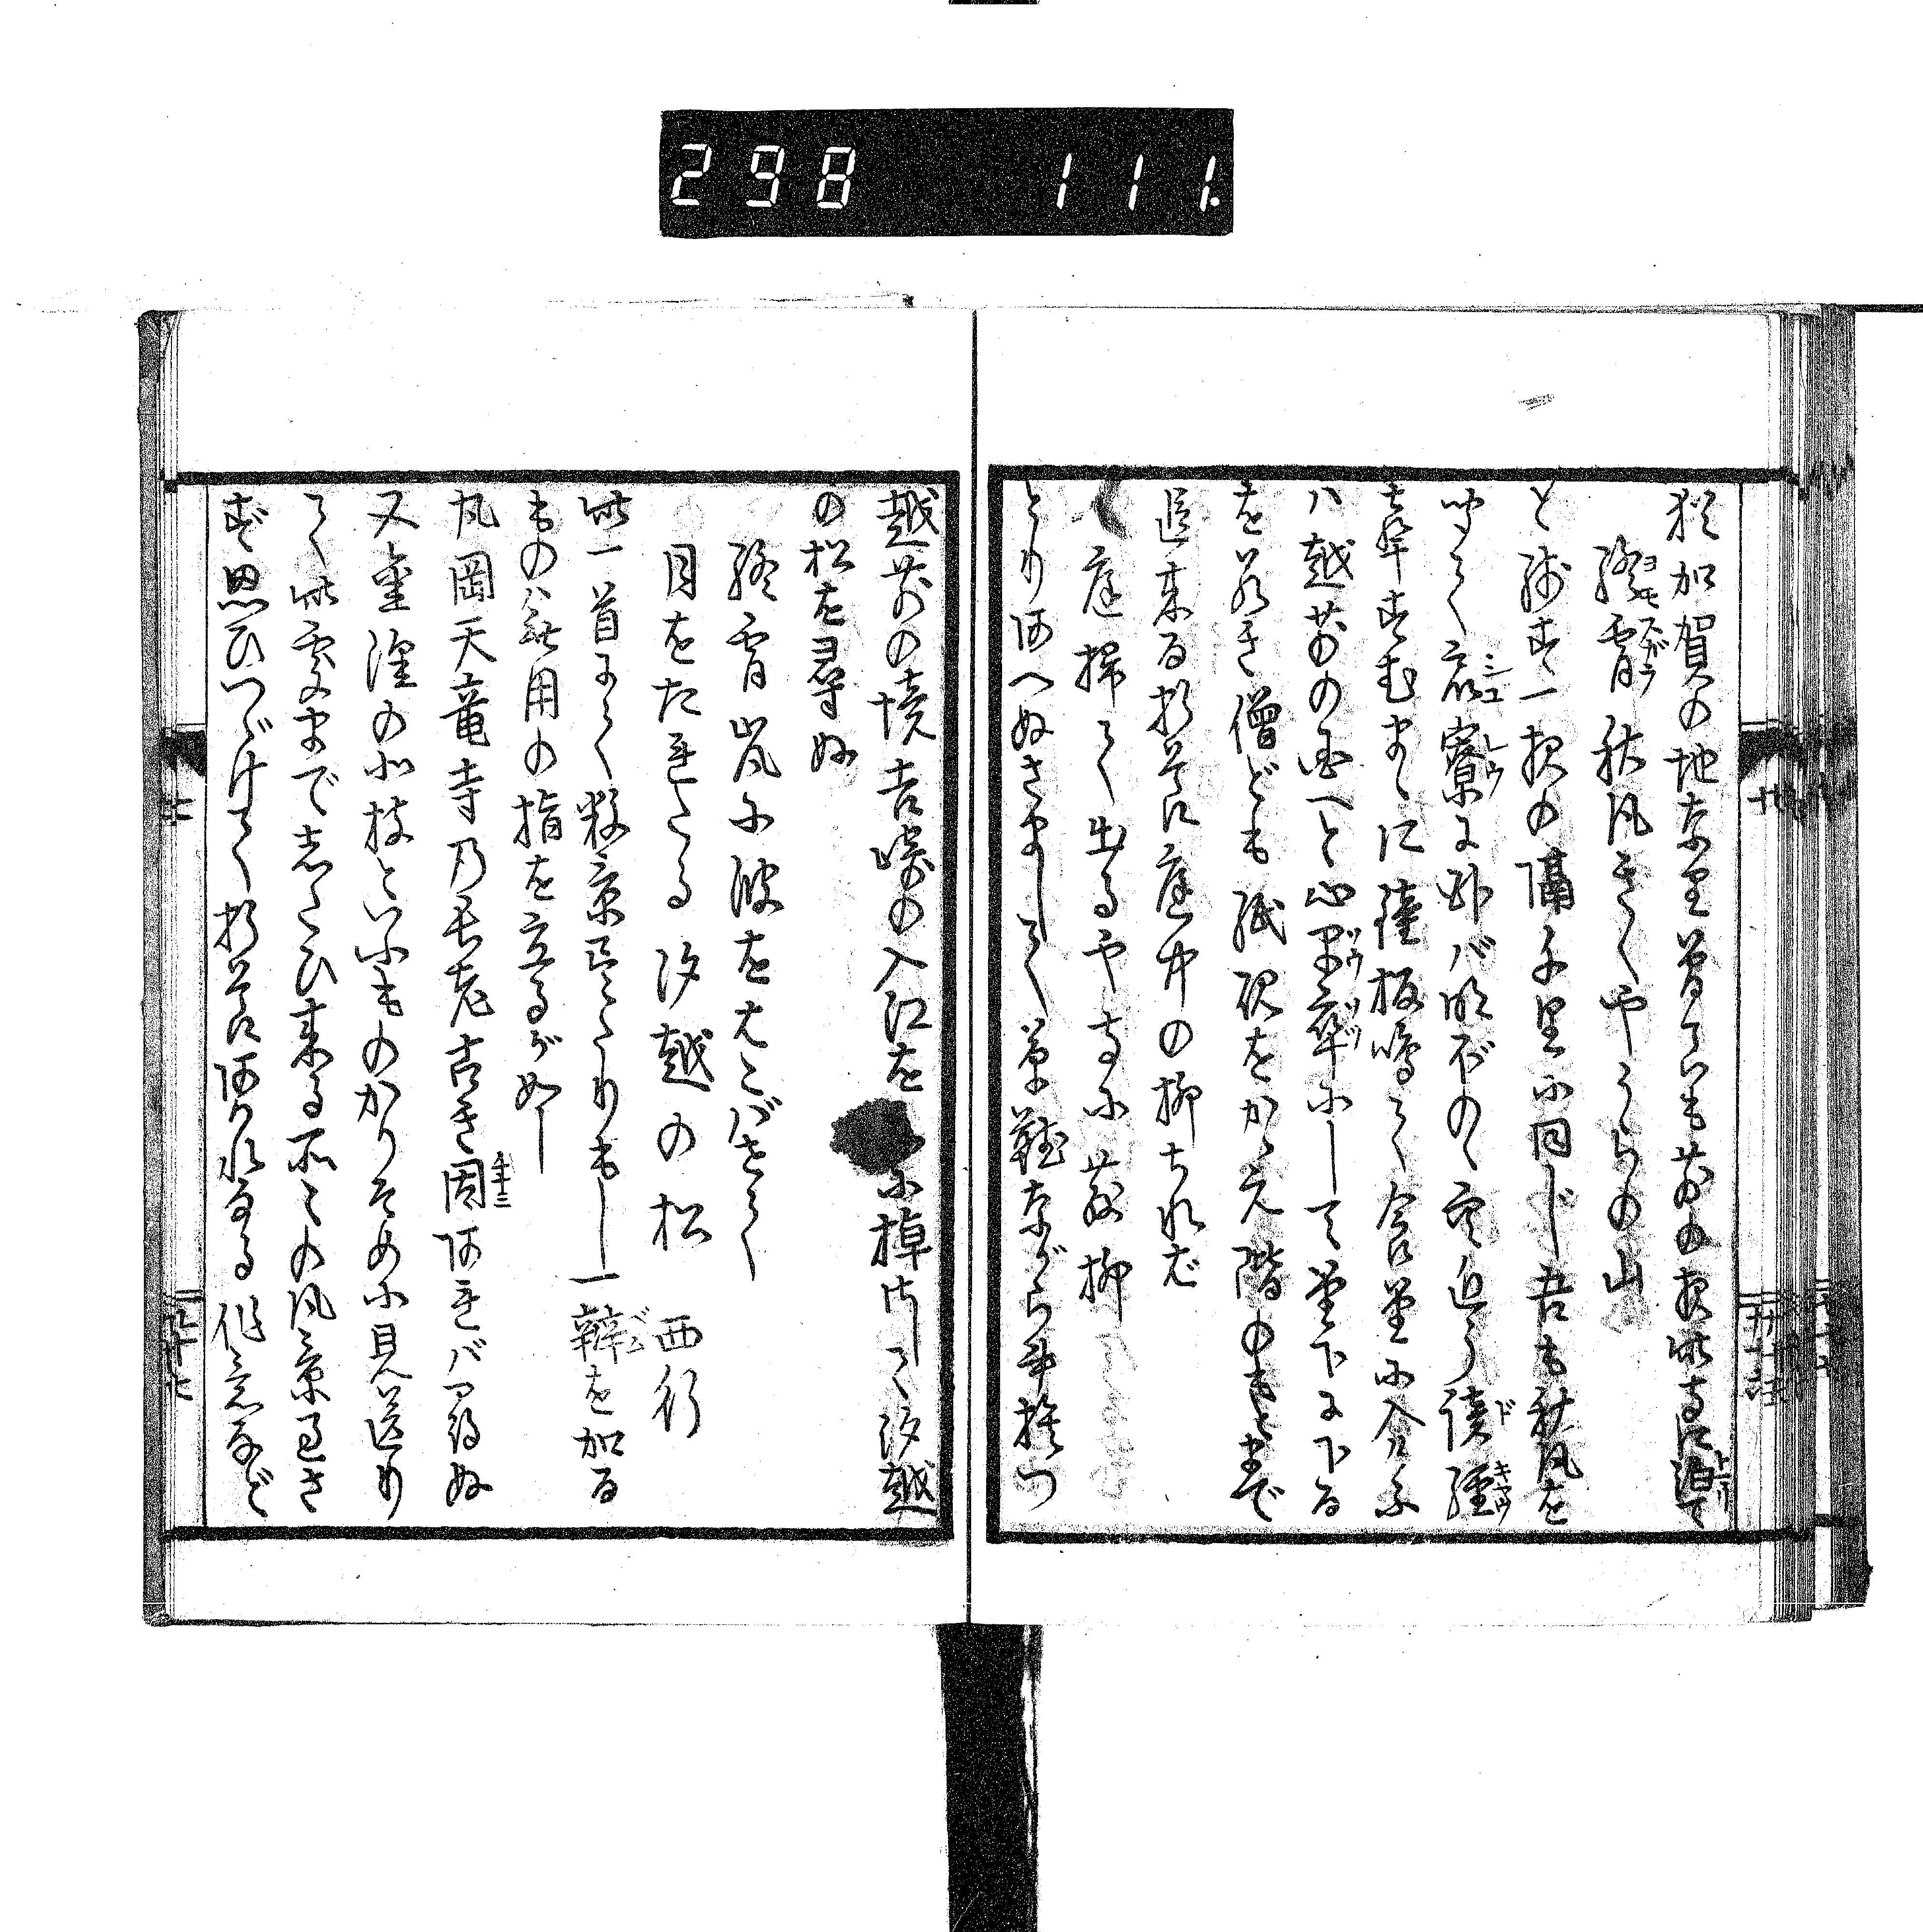 298 111
猶加賀の地なり曽良も前の夜此寺に泊て
終宵秋風きくやうらの山
と残す一夜の隔千里に同じ吾も秋風を
聞て衆寮に臥ば明ぼのゝ空近う読経
声すむまゝに鐘板鳴て食堂に入けふ
ハ越前の国へと心早卒にして堂下に下る
を若き僧ども紙硯をかゝえ階のもとまで
追来る折節庭中の柳ちれば
庭掃て出るや寺に散柳
とりあへぬさまして草鞋ながら書捨つ
越前の境吉崎の入江をに棹さして汐越
の松を尋ぬ
終宵嵐に波をはこばせて
月をたれたる汐越の松 西行
此一首にて数景尽たりもし一辨を加る
ものハ無用の指を立るが如し
丸岡天竜寺乃長老古き因あればバ尋ぬ
又金澤の北枝といふものかりそめに見送り
て此処までしたひ来る所々の風景過さ
ず思ひつゞけて折節あはれなる作意など